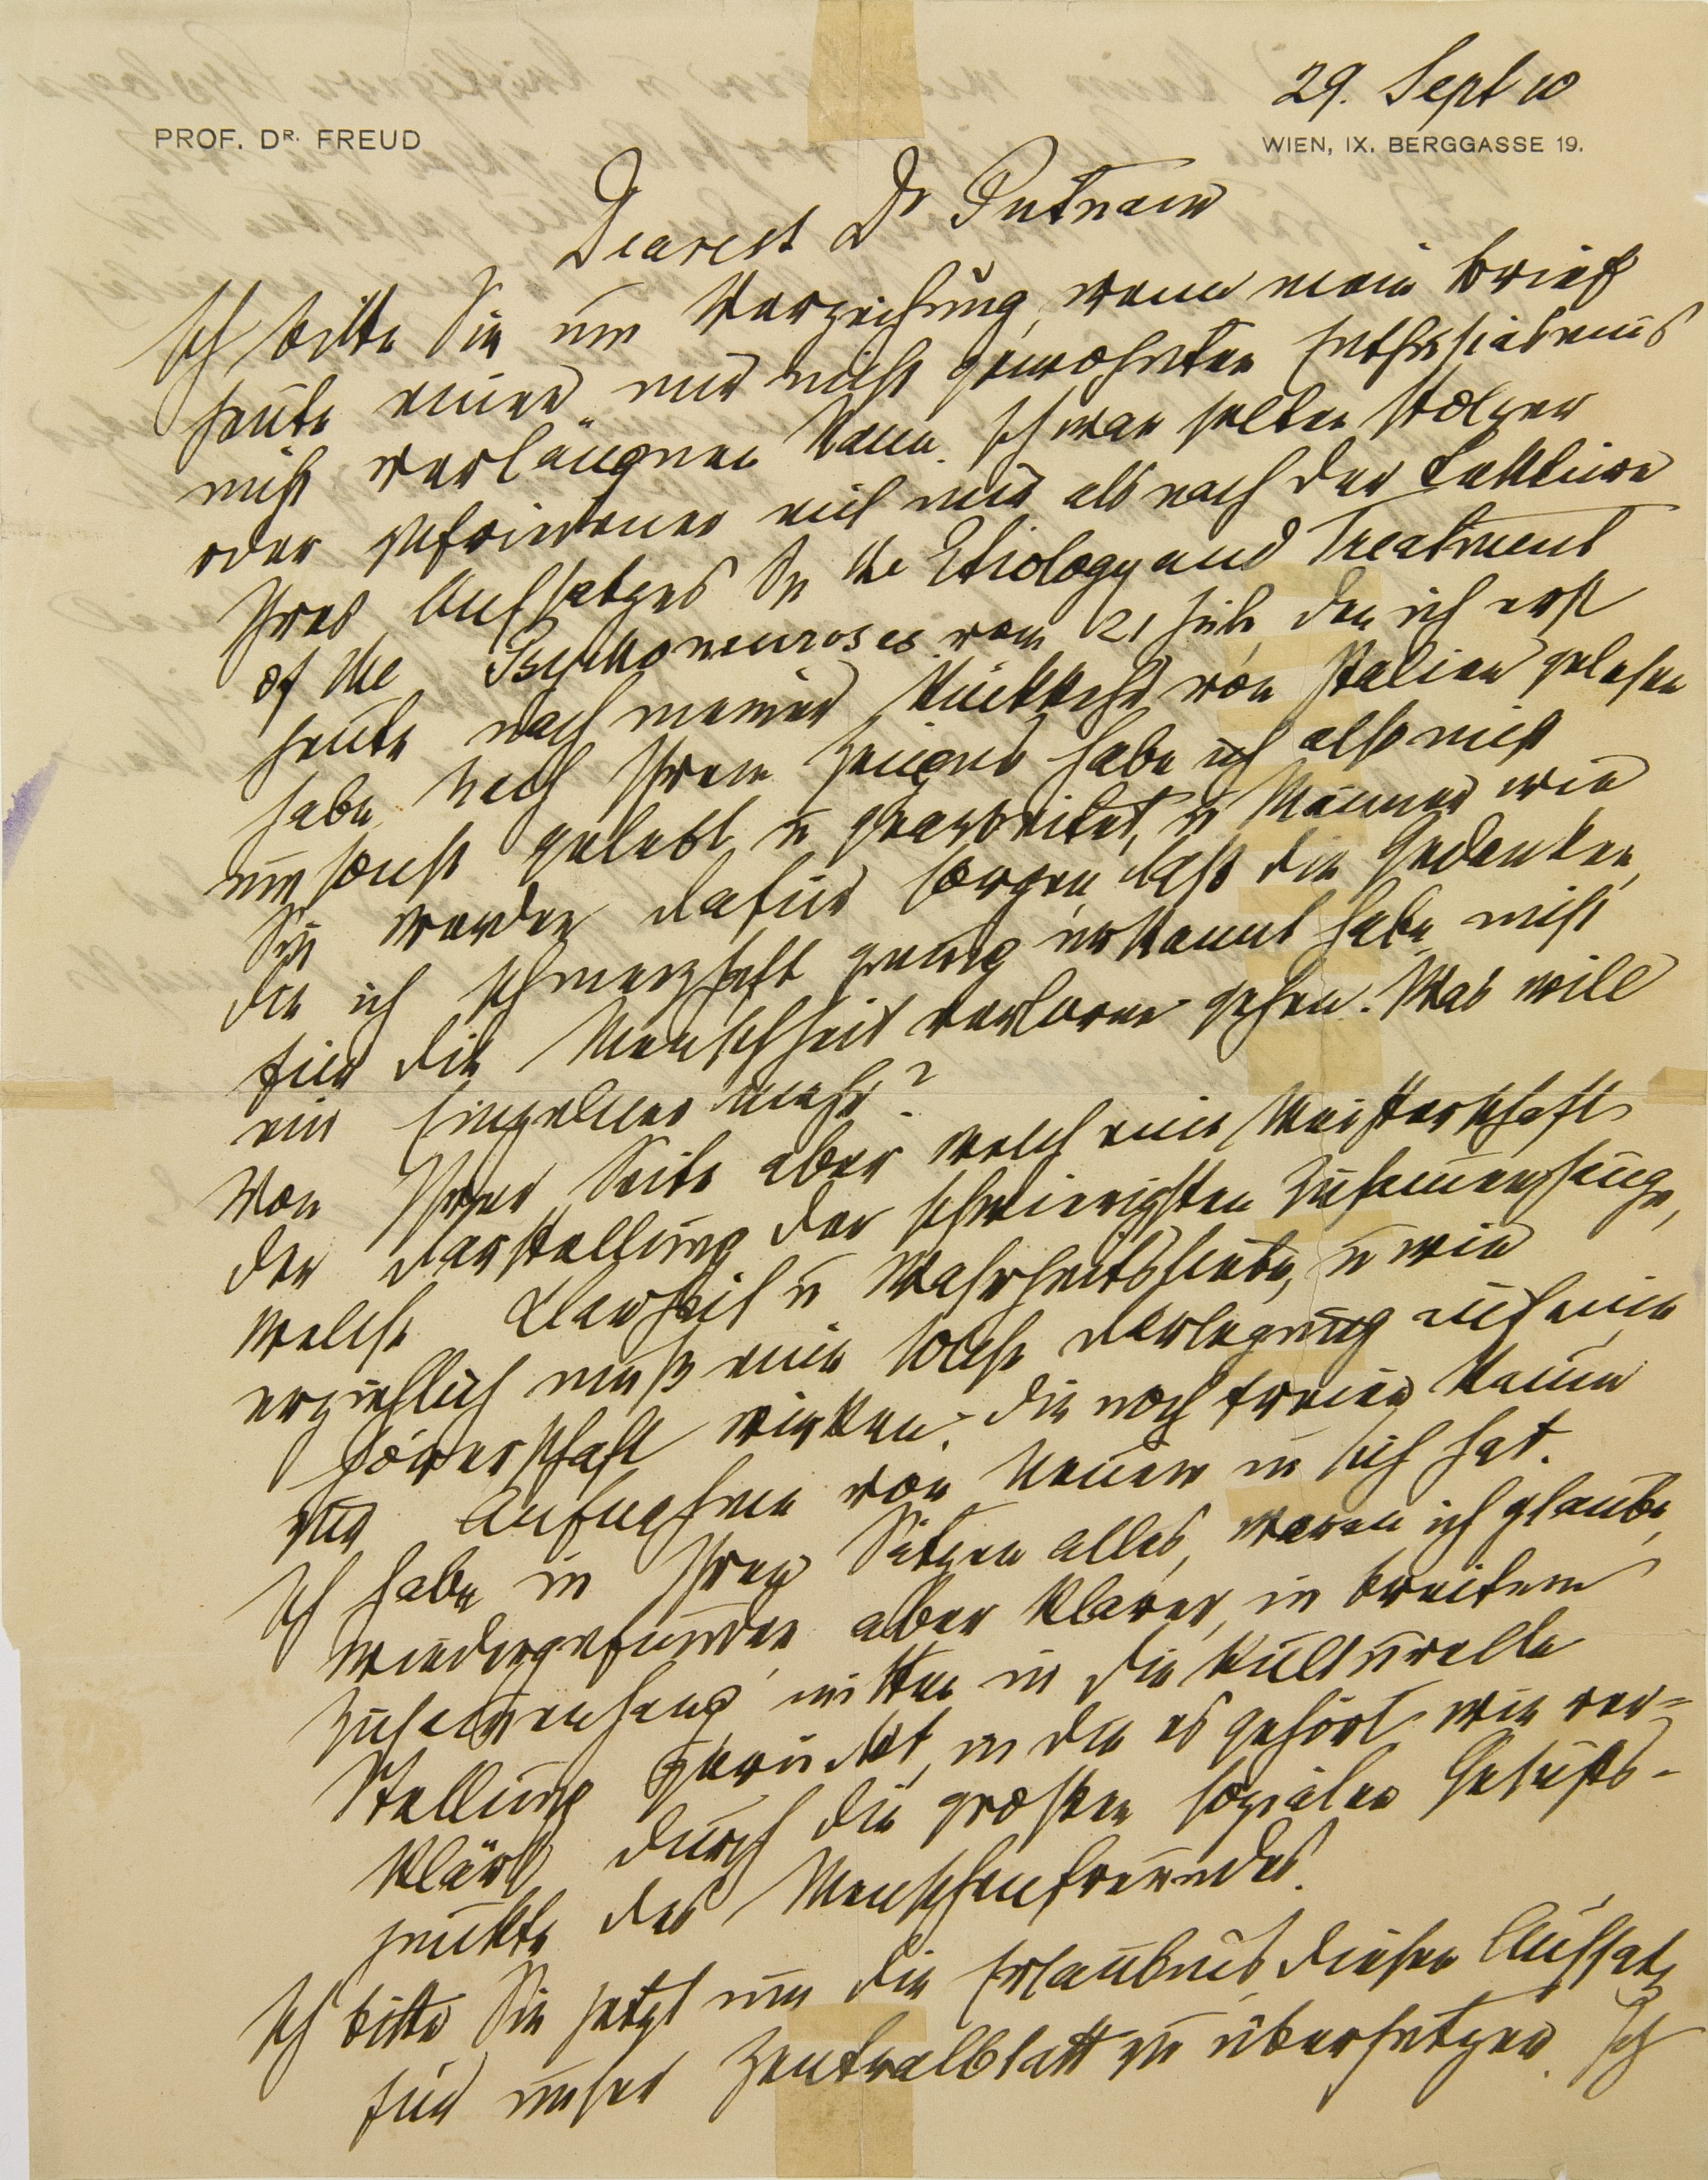 29. Sept 10
PROF. DR. FREUD
WIEN, IX. BERGGASSE 19.
Dearest Dr Putnam
Ich bitte Sie um Verzeihung, wenn mein Brief
heute einen mir nicht gewohnten Enthusiasmus
nicht verläugnen kann. Ich war selten stolzer
oder zufriedener mit mir als nach der Lektüre
Ihres Aufsatzes On the Etiology and Treatment
of the Psychoneuroses vom 21 Juli, den ich erst
heute nach meiner Rückkehr von Italien gelesen
habe. Nach Ihrem Zeugnis habe ich also nicht
umsonst gelebt u gearbeitet, u Männer wie
Sie werden dafür sorgen, daß die Gedanken,
die ich schmerzhaft genug erkannt habe, nicht
für die Menschheit verloren gehen. Was will
ein Einzelner mehr?
Von Ihrer Seite aber welch eine Meisterschaft
der Darstellung der schwierigsten Zusammenhänge,
welche Klarheit u Wahrheitsliebe, u wie
erziehlich muß eine solche Darlegung auf eine
Hörerschaft wirken, die noch freien Raum
zur Aufnahme von Neuem in sich hat.
Ich habe in Ihren Sätzen alles, woran ich glaube,
wiedergefunden, aber klarer, in breitem
Zusammenhang mitten in die kulturelle
Stellung gerückt, in die es gehört, wie ver=
klärt durch die großen sozialen Gesichts-
punkte des Menschenfreundes.
Ich bitte Sie jetzt um die Erlaubnis, diesen Aufsatz
für unser Zentralblatt zu übersetzen. Ich